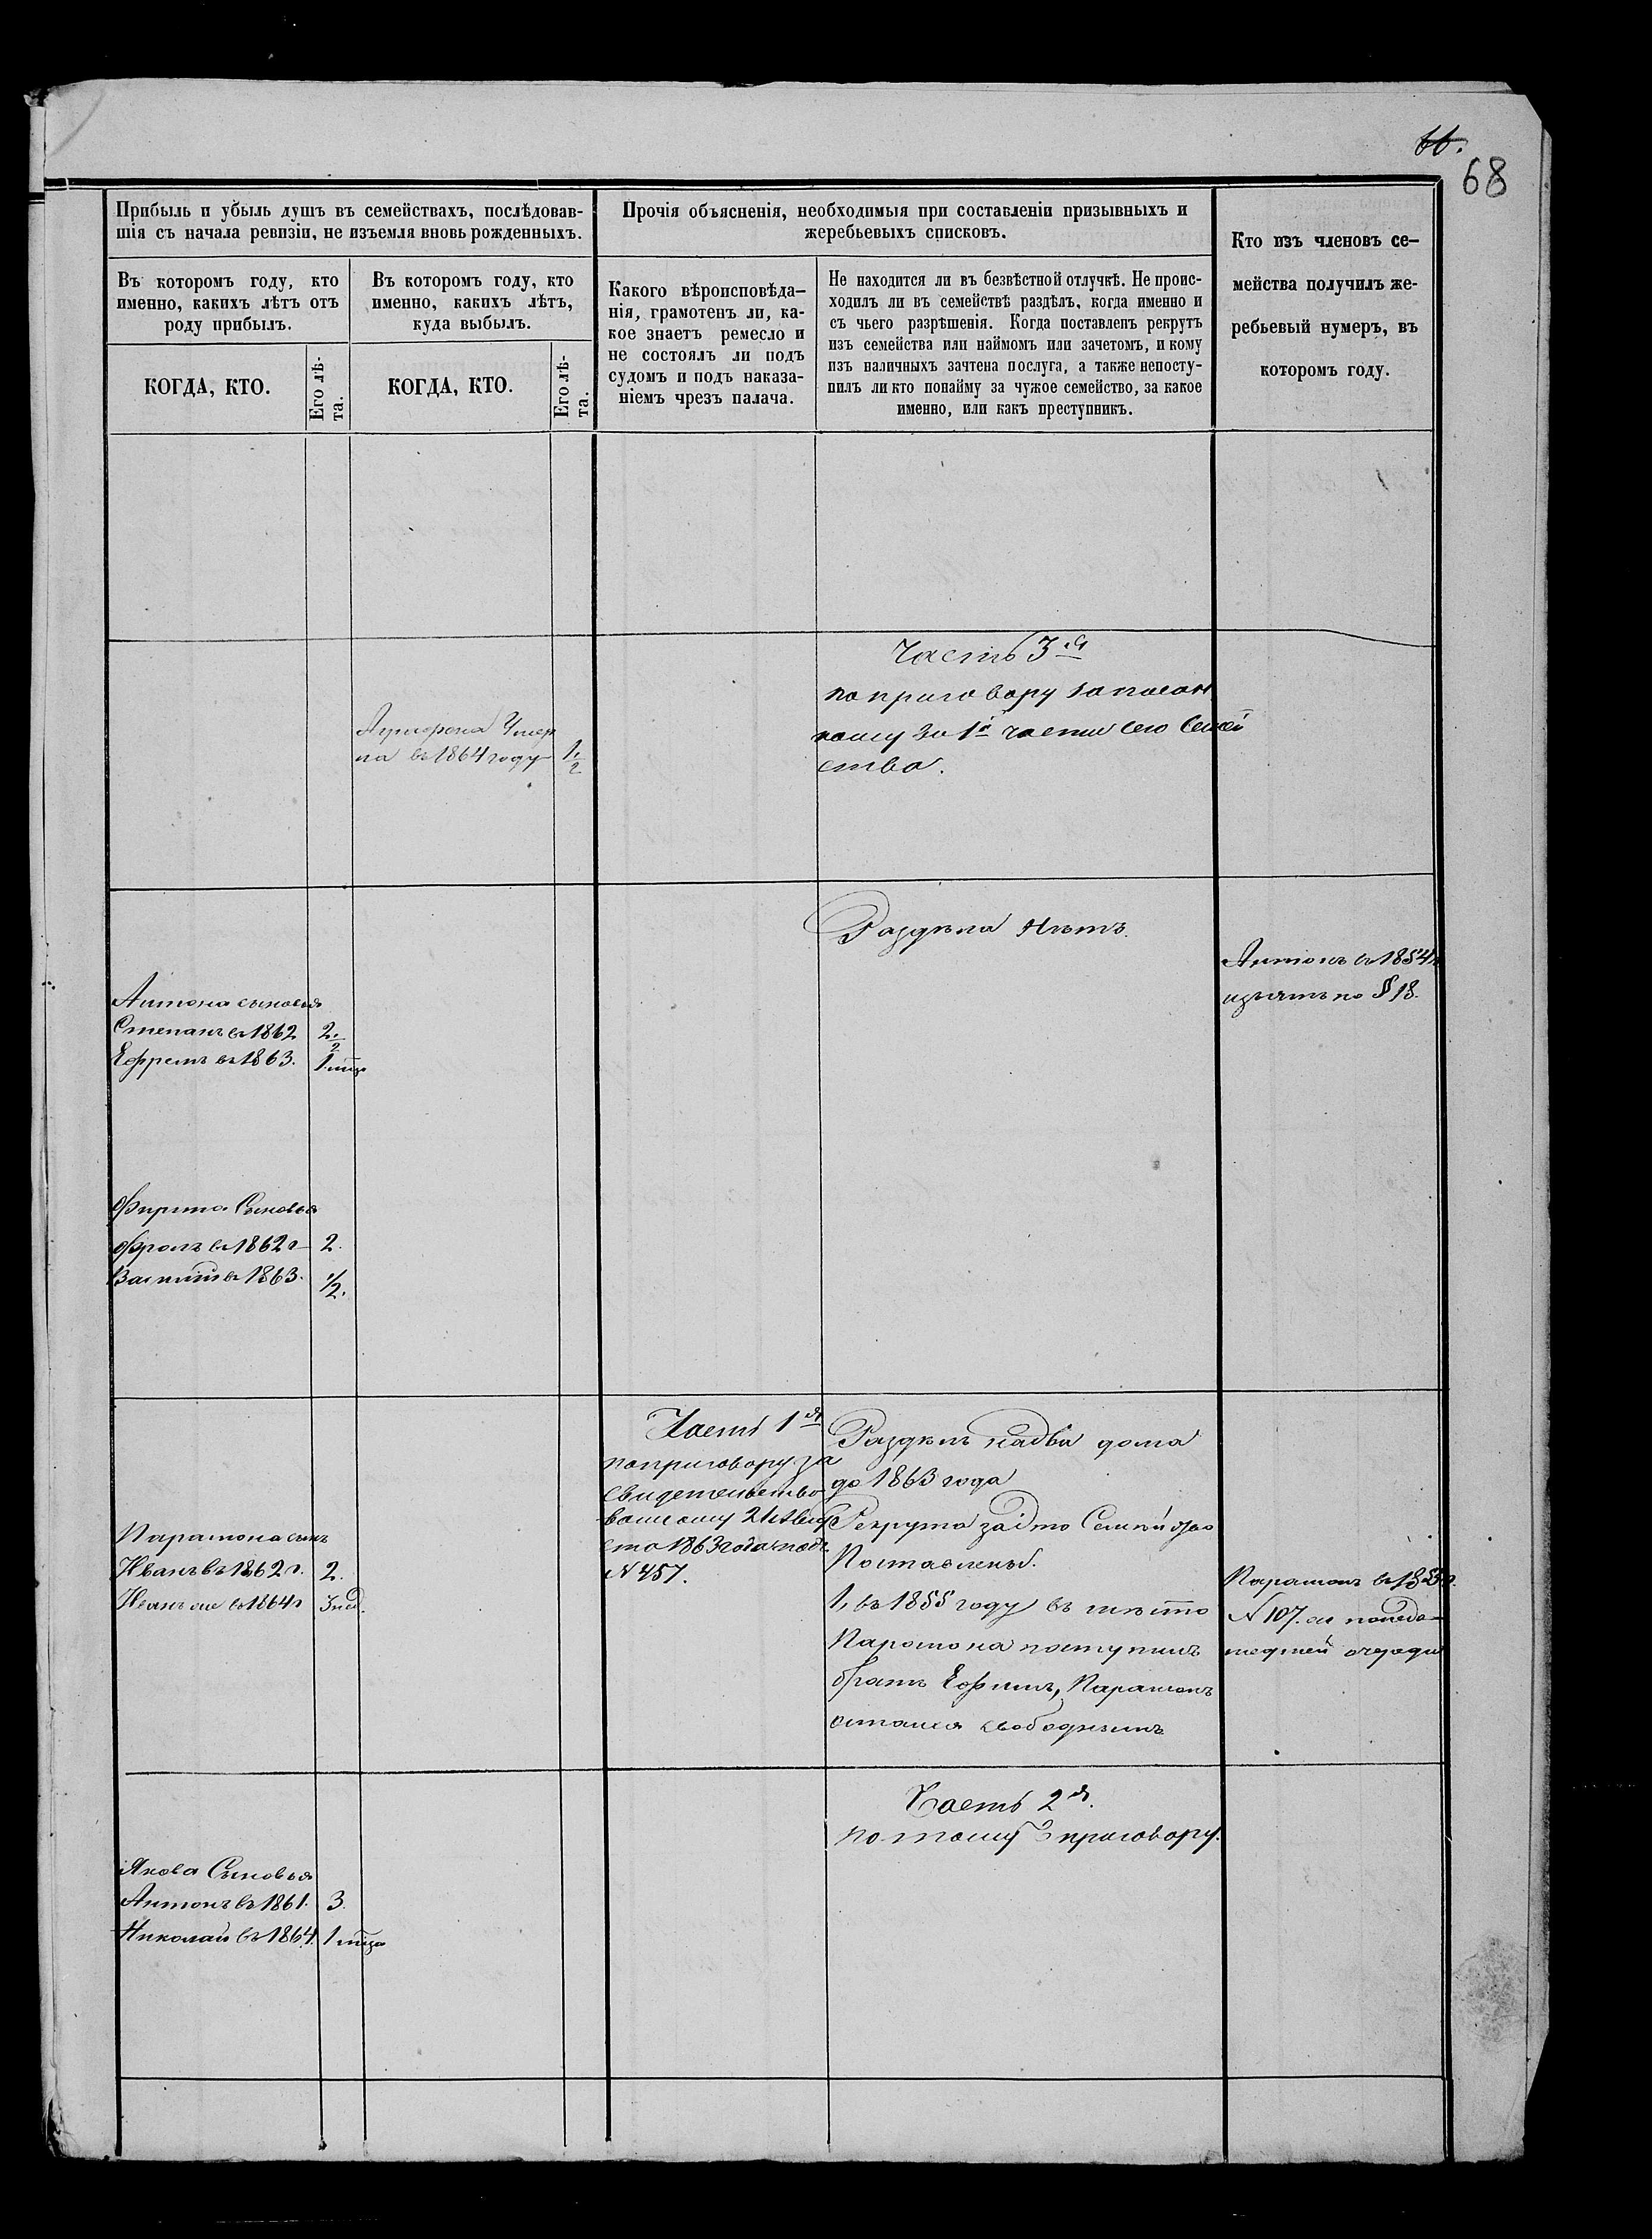 66.
68
Прибыль и убыль душъ въ семействахъ, послѣдовав-
шія съ начала ревизіи, не изъемля вновь рожденныхъ.
Прочія объясненія, необходимыя при составленіи призывныхъ и
жеребьевыхъ списковъ.
Кто изъ членовъ се-
мейства получилъ же-
ребьевый нумеръ, въ
которомъ году.
Въ которомъ году, кто
именно, какихъ лѣтъ отъ
роду прибылъ.
Въ которомъ году, кто
именно, какихъ лѣтъ,
куда выбылъ.
Какого вѣроисповѣда-
нія, грамотенъ ли, ка-
кое знаетъ ремесло и
не состоялъ ли подъ
судомъ и подъ наказа-
ніемъ чрезъ палача.
Не находится ли въ безвѣстной отлучкѣ. Не проис-
ходилъ ли въ семействѣ раздѣлъ, когда именно и
съ чьего разрѣшенія. Когда поставленъ рекрутъ
изъ семейства или наймомъ или зачетомъ, и кому
изъ наличныхъ зачтена послуга, а также непосту-
пилъ ли кто понайму за чужое семейство, за какое
именно, или какъ преступникъ.
КОГДА, КТО.
Его лѣ-
та.
КОГДА, КТО.
Его лѣ-
та.
Часть 3я
по приговору записан
ному въ 1й части сего Семей
ства.
Умер
ла въ 1864 году 1/2
Раздѣла Нѣтъ.
Антонъ въ 1854
изъятъ по § 18.
Антона сыновья
Степанъ въ 1862 2 1/2
Ефремъ въ 1863. 1 мца
Фирса Сыновья
Фролъ въ 1862 г 2.
Василій въ 1863. 1/2.
Часть 1я
по приговору за
свидетельство
ванному 21 Авгу
ста 1863 года подъ
№ 457.
Раздѣлъ на два дома
до 1863 года
Рекрута за это Семейство
Поставлены.
1, въ 1855 году въ мѣсто
Парамона поступилъ
братъ Ефимъ, Парамонъ
остался свободнымъ
Парамона сынъ
Иванъ въ 1862 г. 2.
Иванъ же въ 1864 г 3 нед.
Парамонъ въ
№ 107.
очереди
Часть 2я.
по тому приговору.
Якова Сыновья
Антонъ въ 1861. 3.
Николай въ 1864. 1 мца